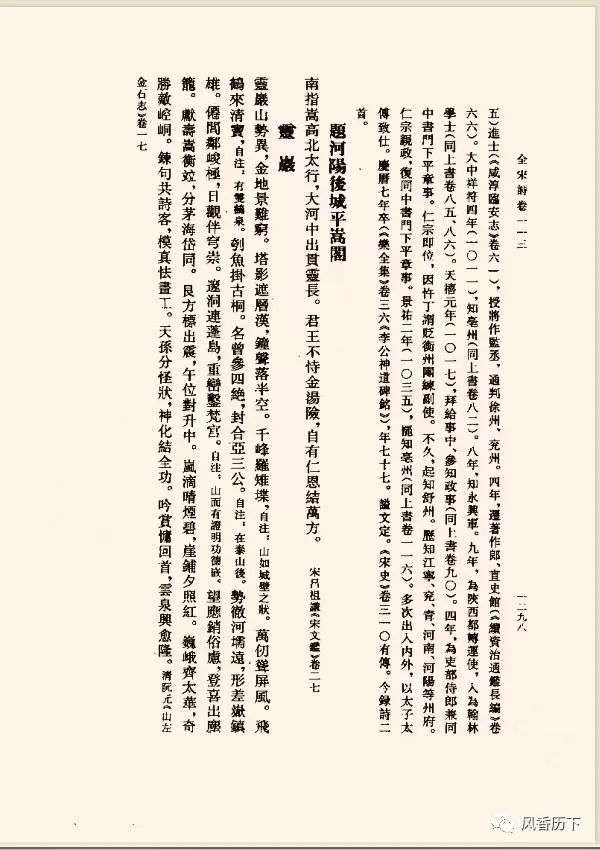 全宋詩卷一一三
一二九八
五)進士(《咸淳臨安志》卷六一),授將作監丞,通判徐州、兗州。四年,遷著作郎、直史館(《續資治通鑑長編》卷
六六)。大中祥符四年(一〇一一),知亳州(同上書卷八二)。八年,知永興軍。九年,為陝西都轉運使,入為翰林
學士(同上書卷八五、八六)。天禧元年(一〇一七),拜給事中、參知政事(同上書卷九〇)。四年,為吏部侍郎兼同
中書門下平章事。仁宗即位,因忤丁謂貶衡州團練副使。不久,起知舒州。歷知江寧、兗、青、河南、河陽等州府。
仁宗親政,復同中書門下平章事。景祐二年(一〇三五),罷知亳州(同上書卷一一六)。多次出入內外,以太子太
傅致仕。慶曆七年卒(《樂全集》卷三六《李公神道碑銘》),年七十七。謚文定。《宋史》卷三一〇有傳。今録詩二
首。
題河陽後城平嵩閣
南指嵩高北太行,大河中出貫靈長。君王不恃金湯險,自有仁恩結萬方。 宋呂祖謙《宋文鑑》卷二七
靈巖
靈巖山勢異,金地景難窮。塔影遮層漢,鐘聲落半空。千峰羅雉堞,自注:山如城壁之狀。萬仞聳屏風。飛
鶴來清竇,自注:有雙鶴泉。刳魚掛古桐。名曾參四絶,封合亞三公。自注:在泰山後。勢徹河壖遠,形差嶽鎮
雄。僊閭鄰峻極,日觀伴穹崇。邃洞連蓬島,重巒鑿梵宮。自注:山面有證明功德嵌。望應銷俗慮,登喜出塵
籠。獻壽嵩衡竝,分茅海岱同。艮方標出震,午位對升中。嵐滴晴煙碧,崖鋪夕照紅。巍峨齊太華,奇
勝敵崆峒。鍊句共詩客,模真怯畫工。天孫分怪狀,神化結全功。吟賞慵回首,雲泉興愈隆。清阮元《山左
金石志》卷一七
风香历下